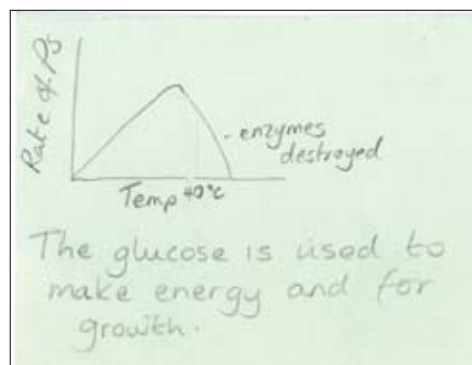 Rate of Ps
- enzymes
destroyed
Temp 40°C
The glucose is used to
make energy and for
growth.